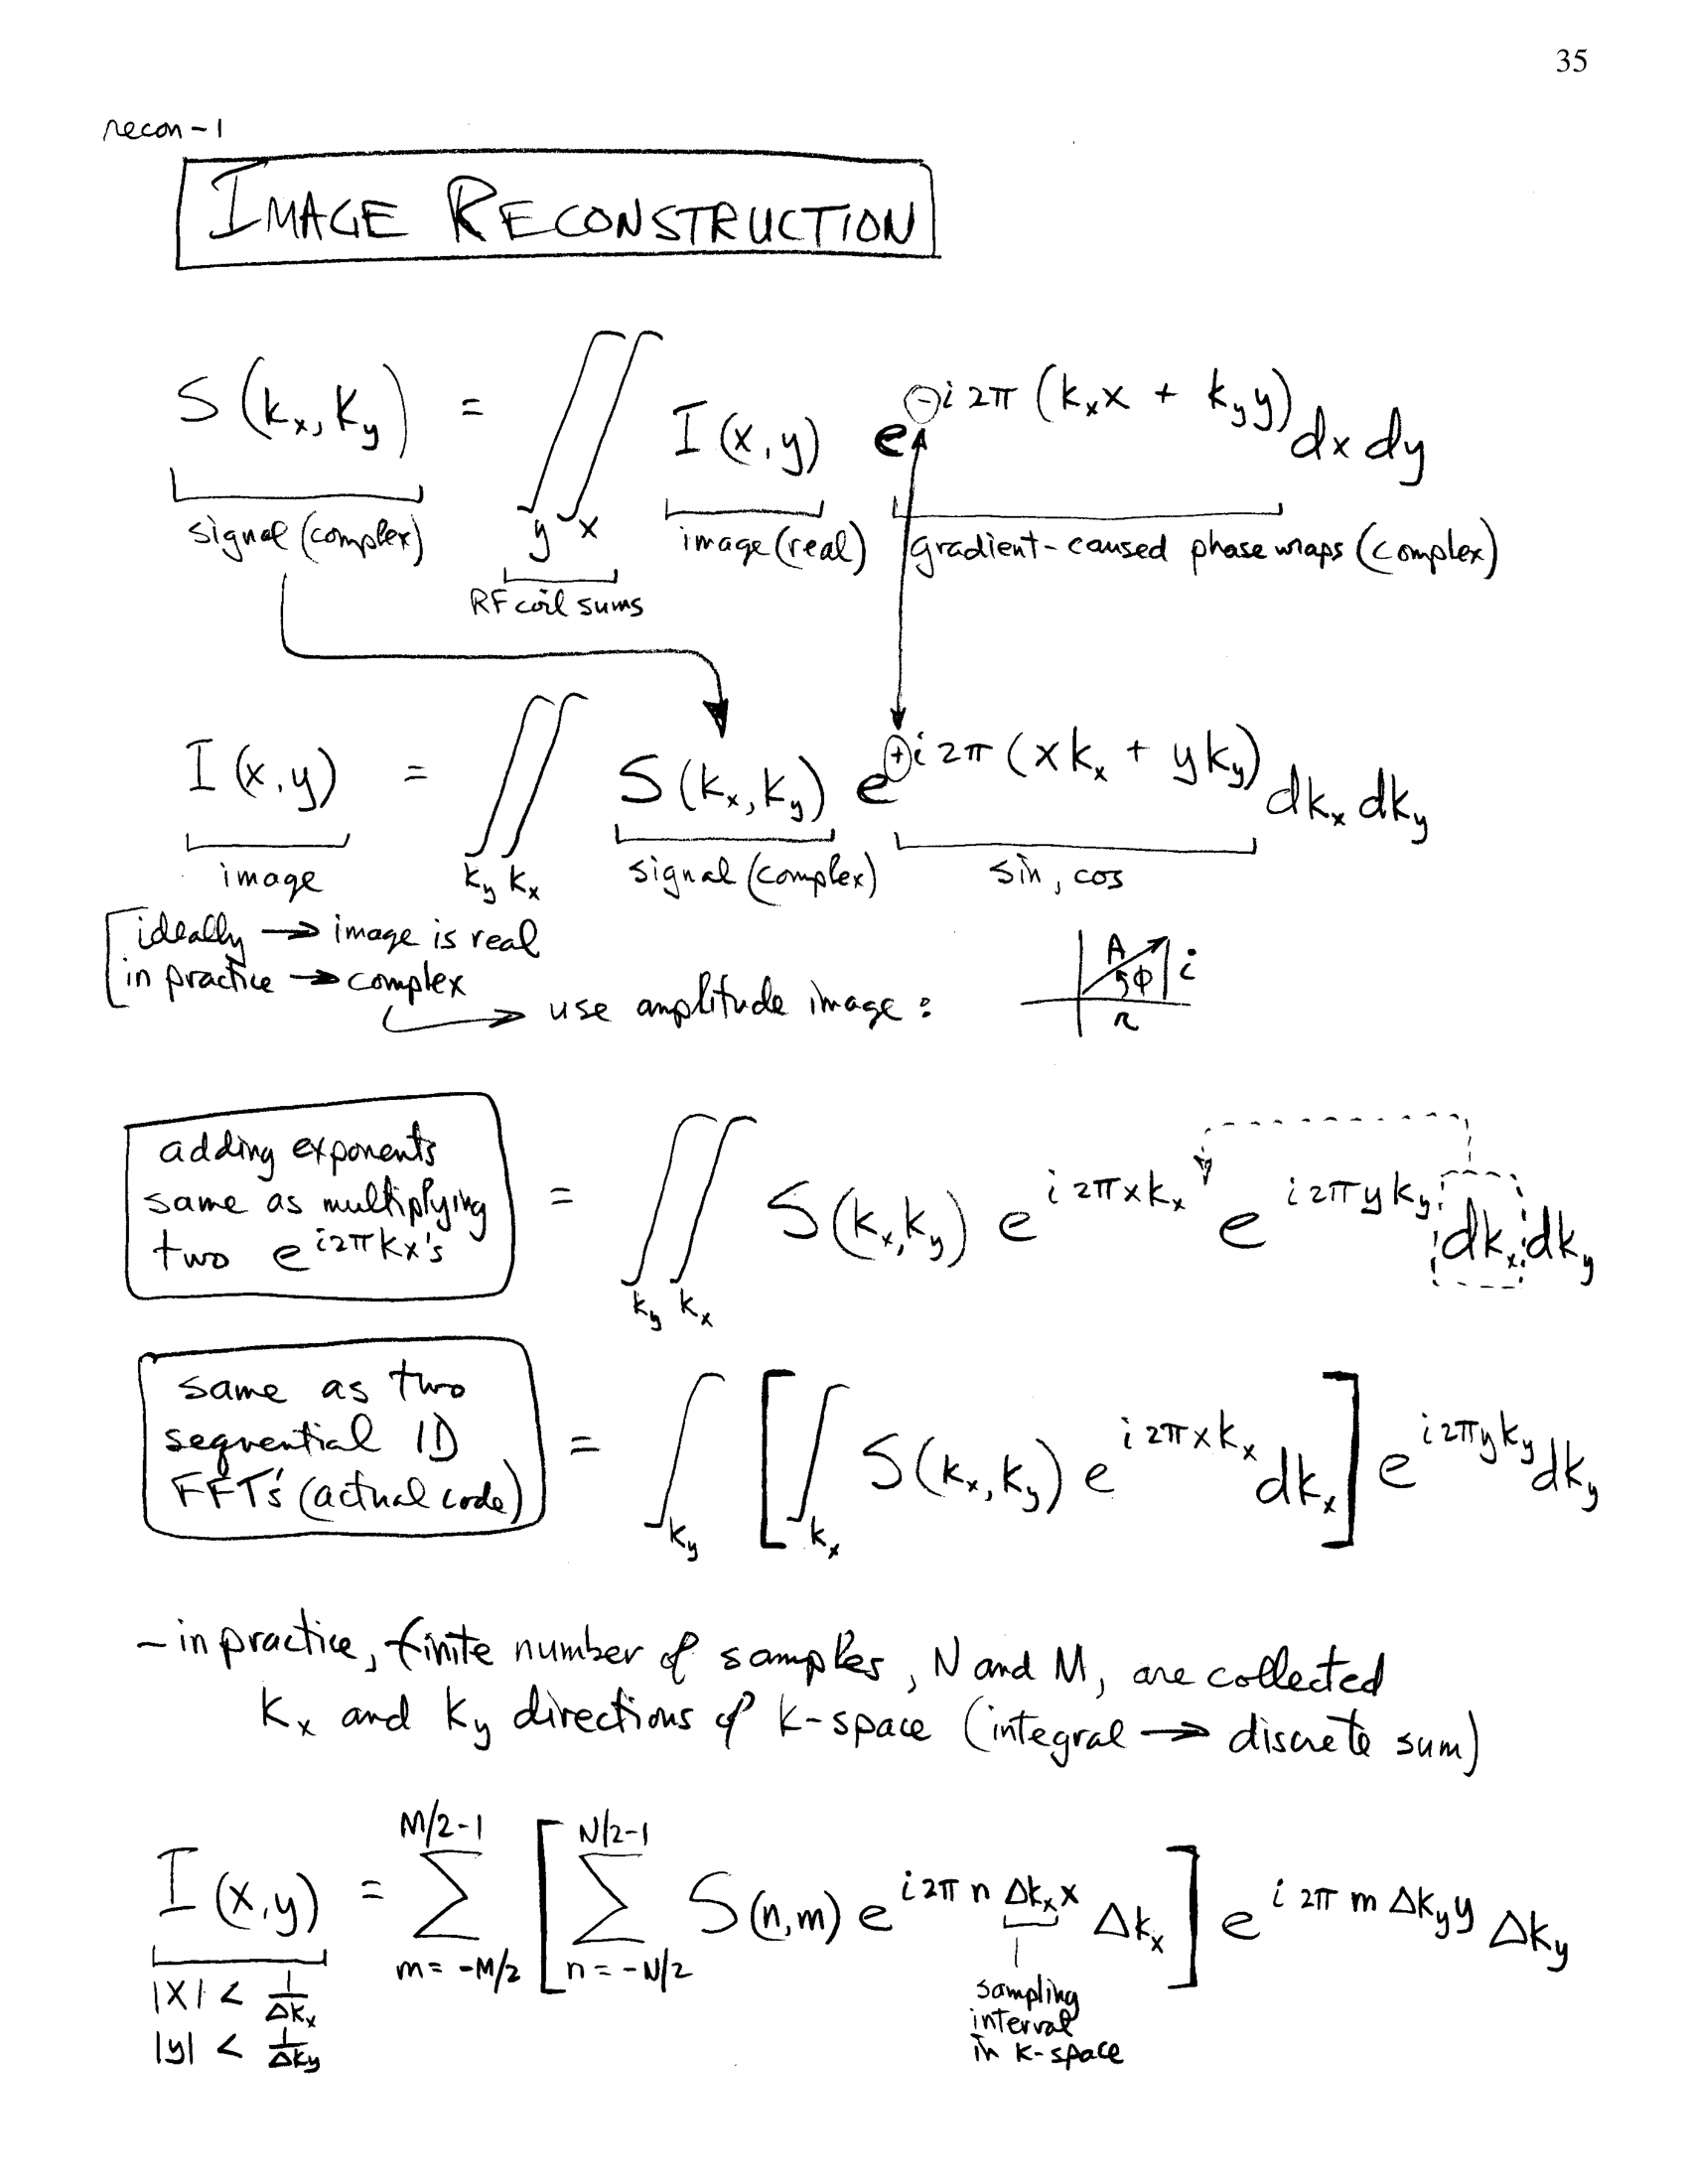 35
recon-1
IMAGE RECONSTRUCTION
S(kx, ky) = ∫∫ I(x,y) e^{⊖i2π(kxx + kyy)} dx dy
y x
signal (complex) image (real) gradient-caused phase wraps (complex)
RF coil sums
I(x,y) = ∫∫ S(kx, ky) e^{⊕i2π(xkx + yky)} dkx dky
image ky kx signal (complex) sin, cos
ideally → image is real
in practice → complex
→ use amplitude image:
A ϕ i
r
adding exponents
same as multiplying
two e^{i2πkx}'s
= ∫∫ S(kx,ky) e^{i2πxkx} e^{i2πyky} dkx dky
ky kx
same as two
sequential 1D
FFT's (actual code)
= ∫ [ ∫ S(kx, ky) e^{i2πxkx} dkx ] e^{i2πyky} dky
ky kx
- in practice, finite number of samples, N and M, are collected
kx and ky directions of k-space (integral → discrete sum)
M/2-1 N/2-1
I(x,y) = Σ [ Σ S(n,m) e^{i2π n Δkxx} Δkx ] e^{i2π m Δkyy} Δky
m= -M/2 n= -N/2
|x| < 1/Δkx
|y| < 1/Δky
sampling
interval
in k-space